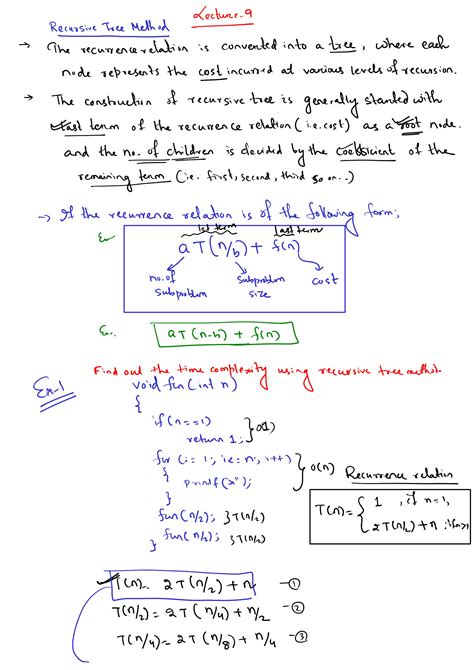 Lecture-9
Recursive Tree Method
→ The recurrence relation is converted into a tree, where each
node represents the cost incurred at various levels of recursion.
→ The construction of recursive tree is generally started with
last term of the recurrence relation (i.e. cost) as a root node.
and the no. of children is decided by the coefficient of the
remaining term (i.e. first, second, third so on..)
→ If the recurrence relation is of the following form;
1st term last term
Ex- aT(n/b) + f(n)
no. of subproblem size cost
subproblem
Ex-. aT(n-b) + f(n)
Find out the time complexity using recursive tree method.
Ex-1 void fun(int n)
{
if (n==1) } O(1)
return 1;
for (i=1; i<=n; i++) } O(n)
{
printf("x");
}
fun(n/2); } T(n/2)
fun(n/2); } T(n/2)
}
Recurrence relation
T(n) = { 1 , if n=1,
2T(n/2)+n ; if n>1
T(n) = 2T(n/2) + n —①
T(n/2) = 2T(n/4) + n/2 —②
T(n/4) = 2T(n/8) + n/4 —③